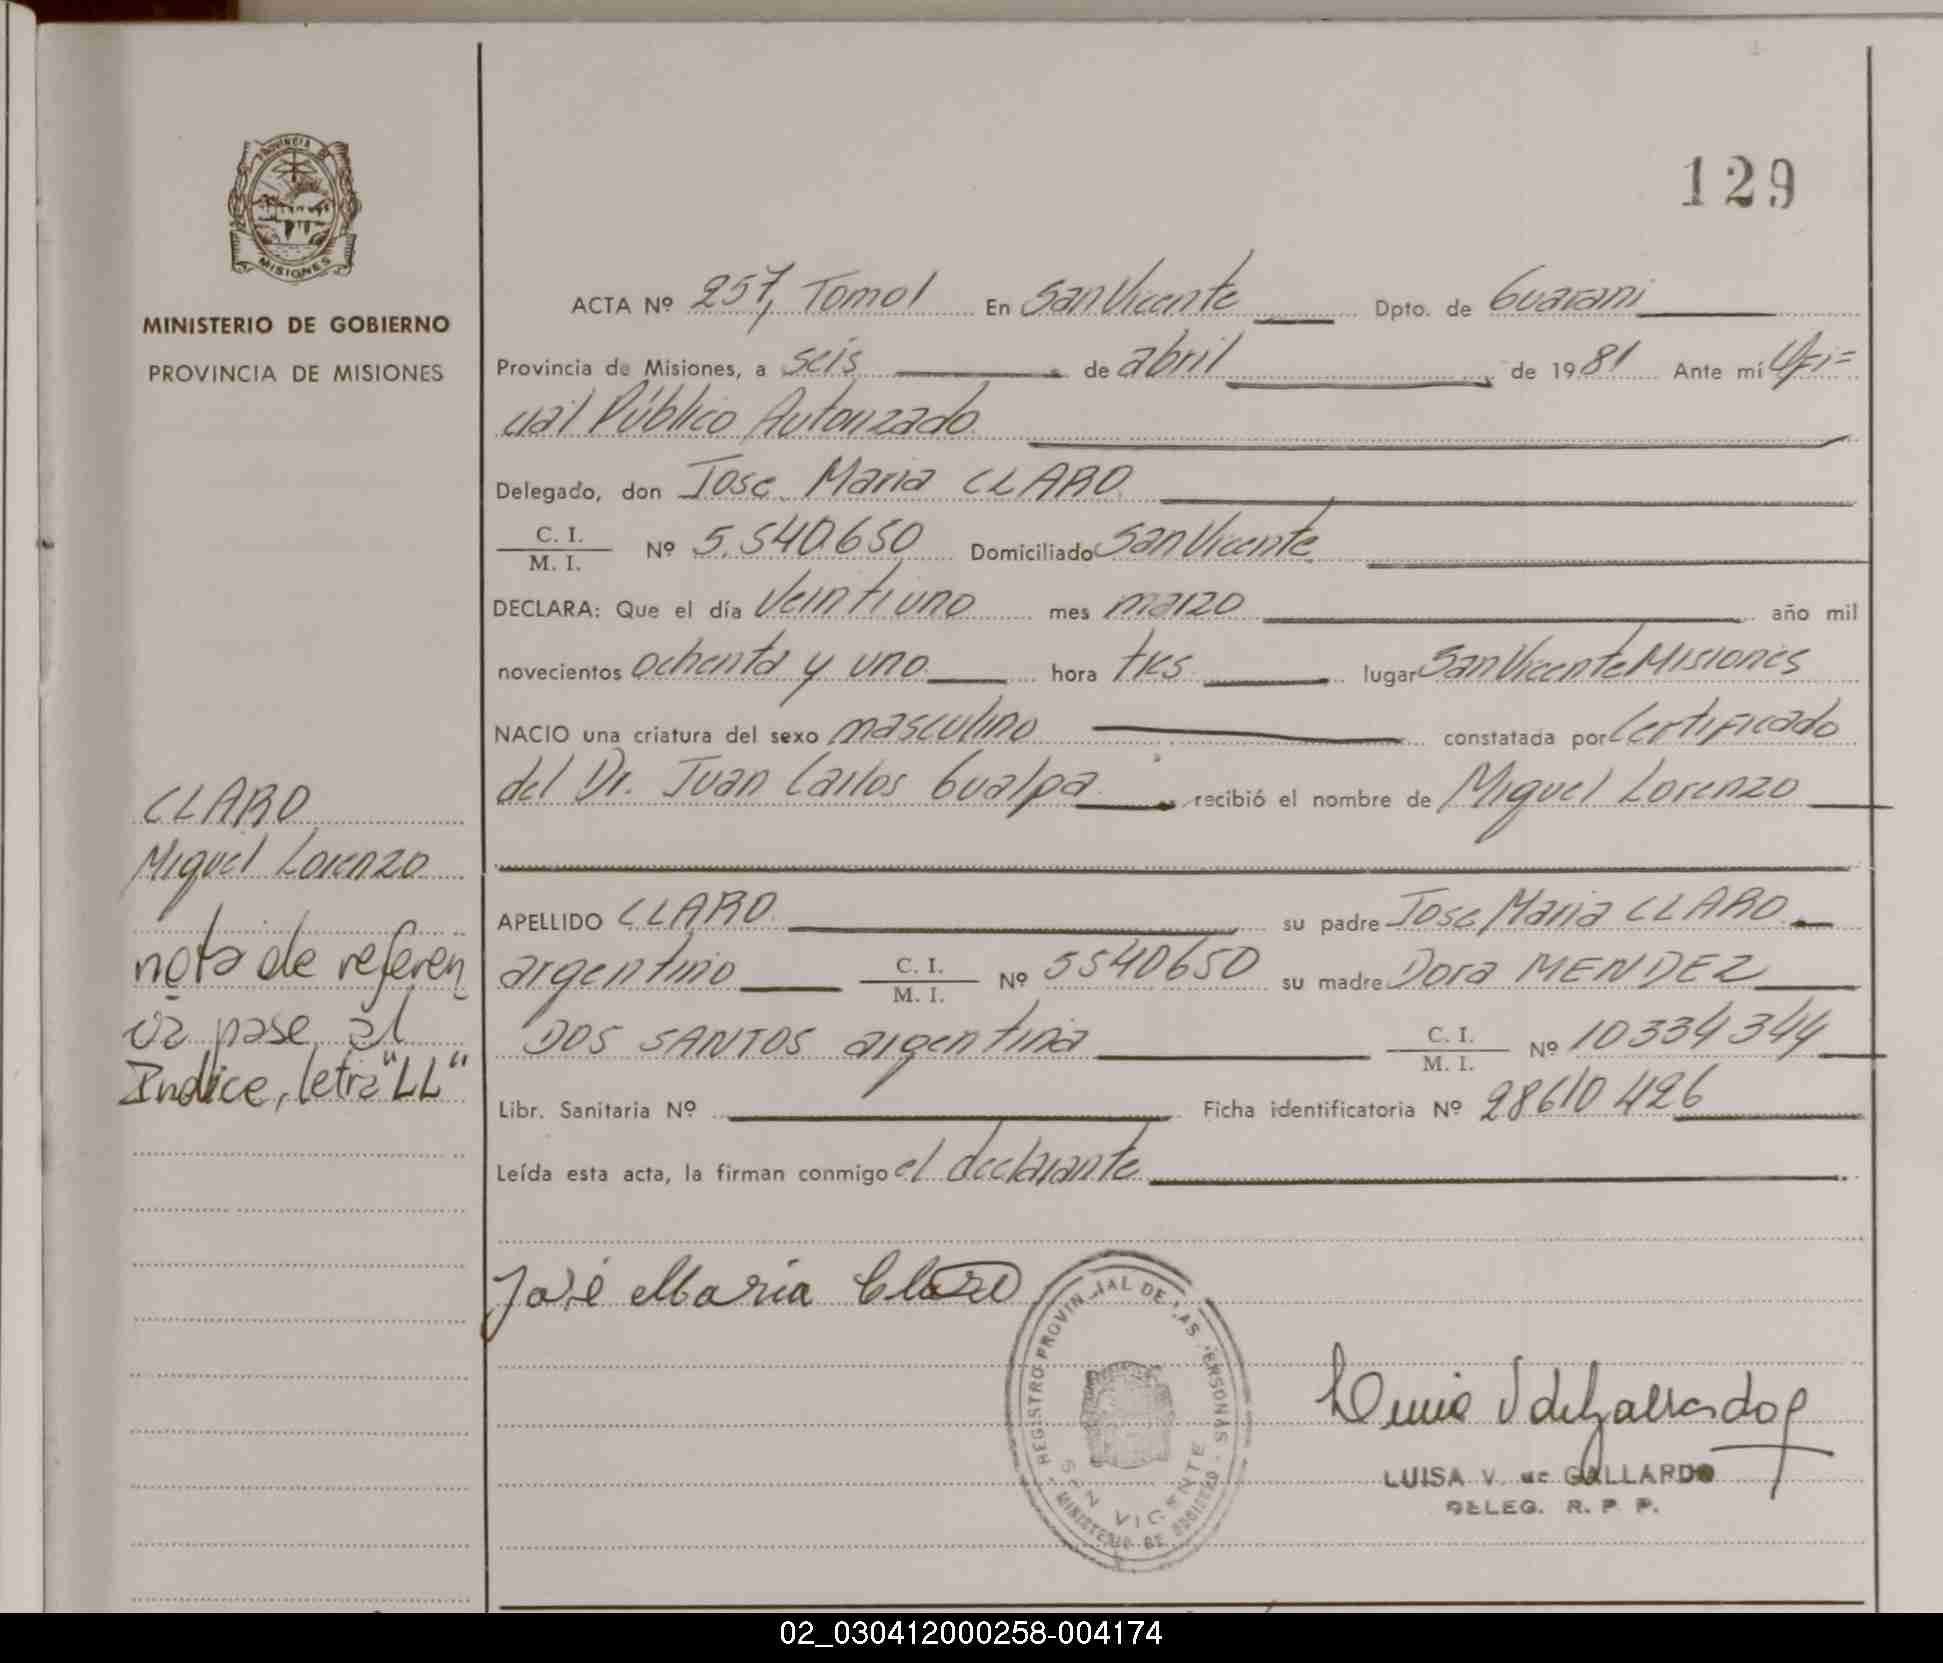 129
PROVINCIA DE
MISIONES
MINISTERIO DE GOBIERNO
PROVINCIA DE MISIONES
ACTA Nº 257, Tomo I En San Vicente Dpto. de Guarani
Provincia de Misiones, a seis de abril de 1981 Ante mí Ofi=
cial Público Autorizado
Delegado, don Jose Maria CLARO
C. I.
M. I. Nº 5.540.650 Domiciliado San Vicente
DECLARA: Que el día Veintiuno mes marzo año mil
novecientos ochenta y uno hora tres lugar San Vicente Misiones
NACIO una criatura del sexo masculino constatada por Certificado
del Dr. Juan Carlos Gualpa recibió el nombre de Miguel Lorenzo
APELLIDO CLARO su padre Jose Maria CLARO
argentino C. I.
M. I. Nº 5540650 su madre Dora MENDEZ
DOS SANTOS argentina C. I.
M. I. Nº 10334344
Libr. Sanitaria Nº Ficha identificatoria Nº 28610426
Leída esta acta, la firman conmigo el declarante
CLARO
Miguel Lorenzo
nota de referen
cia pase al
Indice, letra "LL"
José Maria Claro
REGISTRO PROVINCIAL DE LAS PERSONAS
SAN VICENTE
MINISTERIO DE GOBIERNO
LUISA V. de GALLARDO
DELEG. R. P. P.
02_030412000258-004174